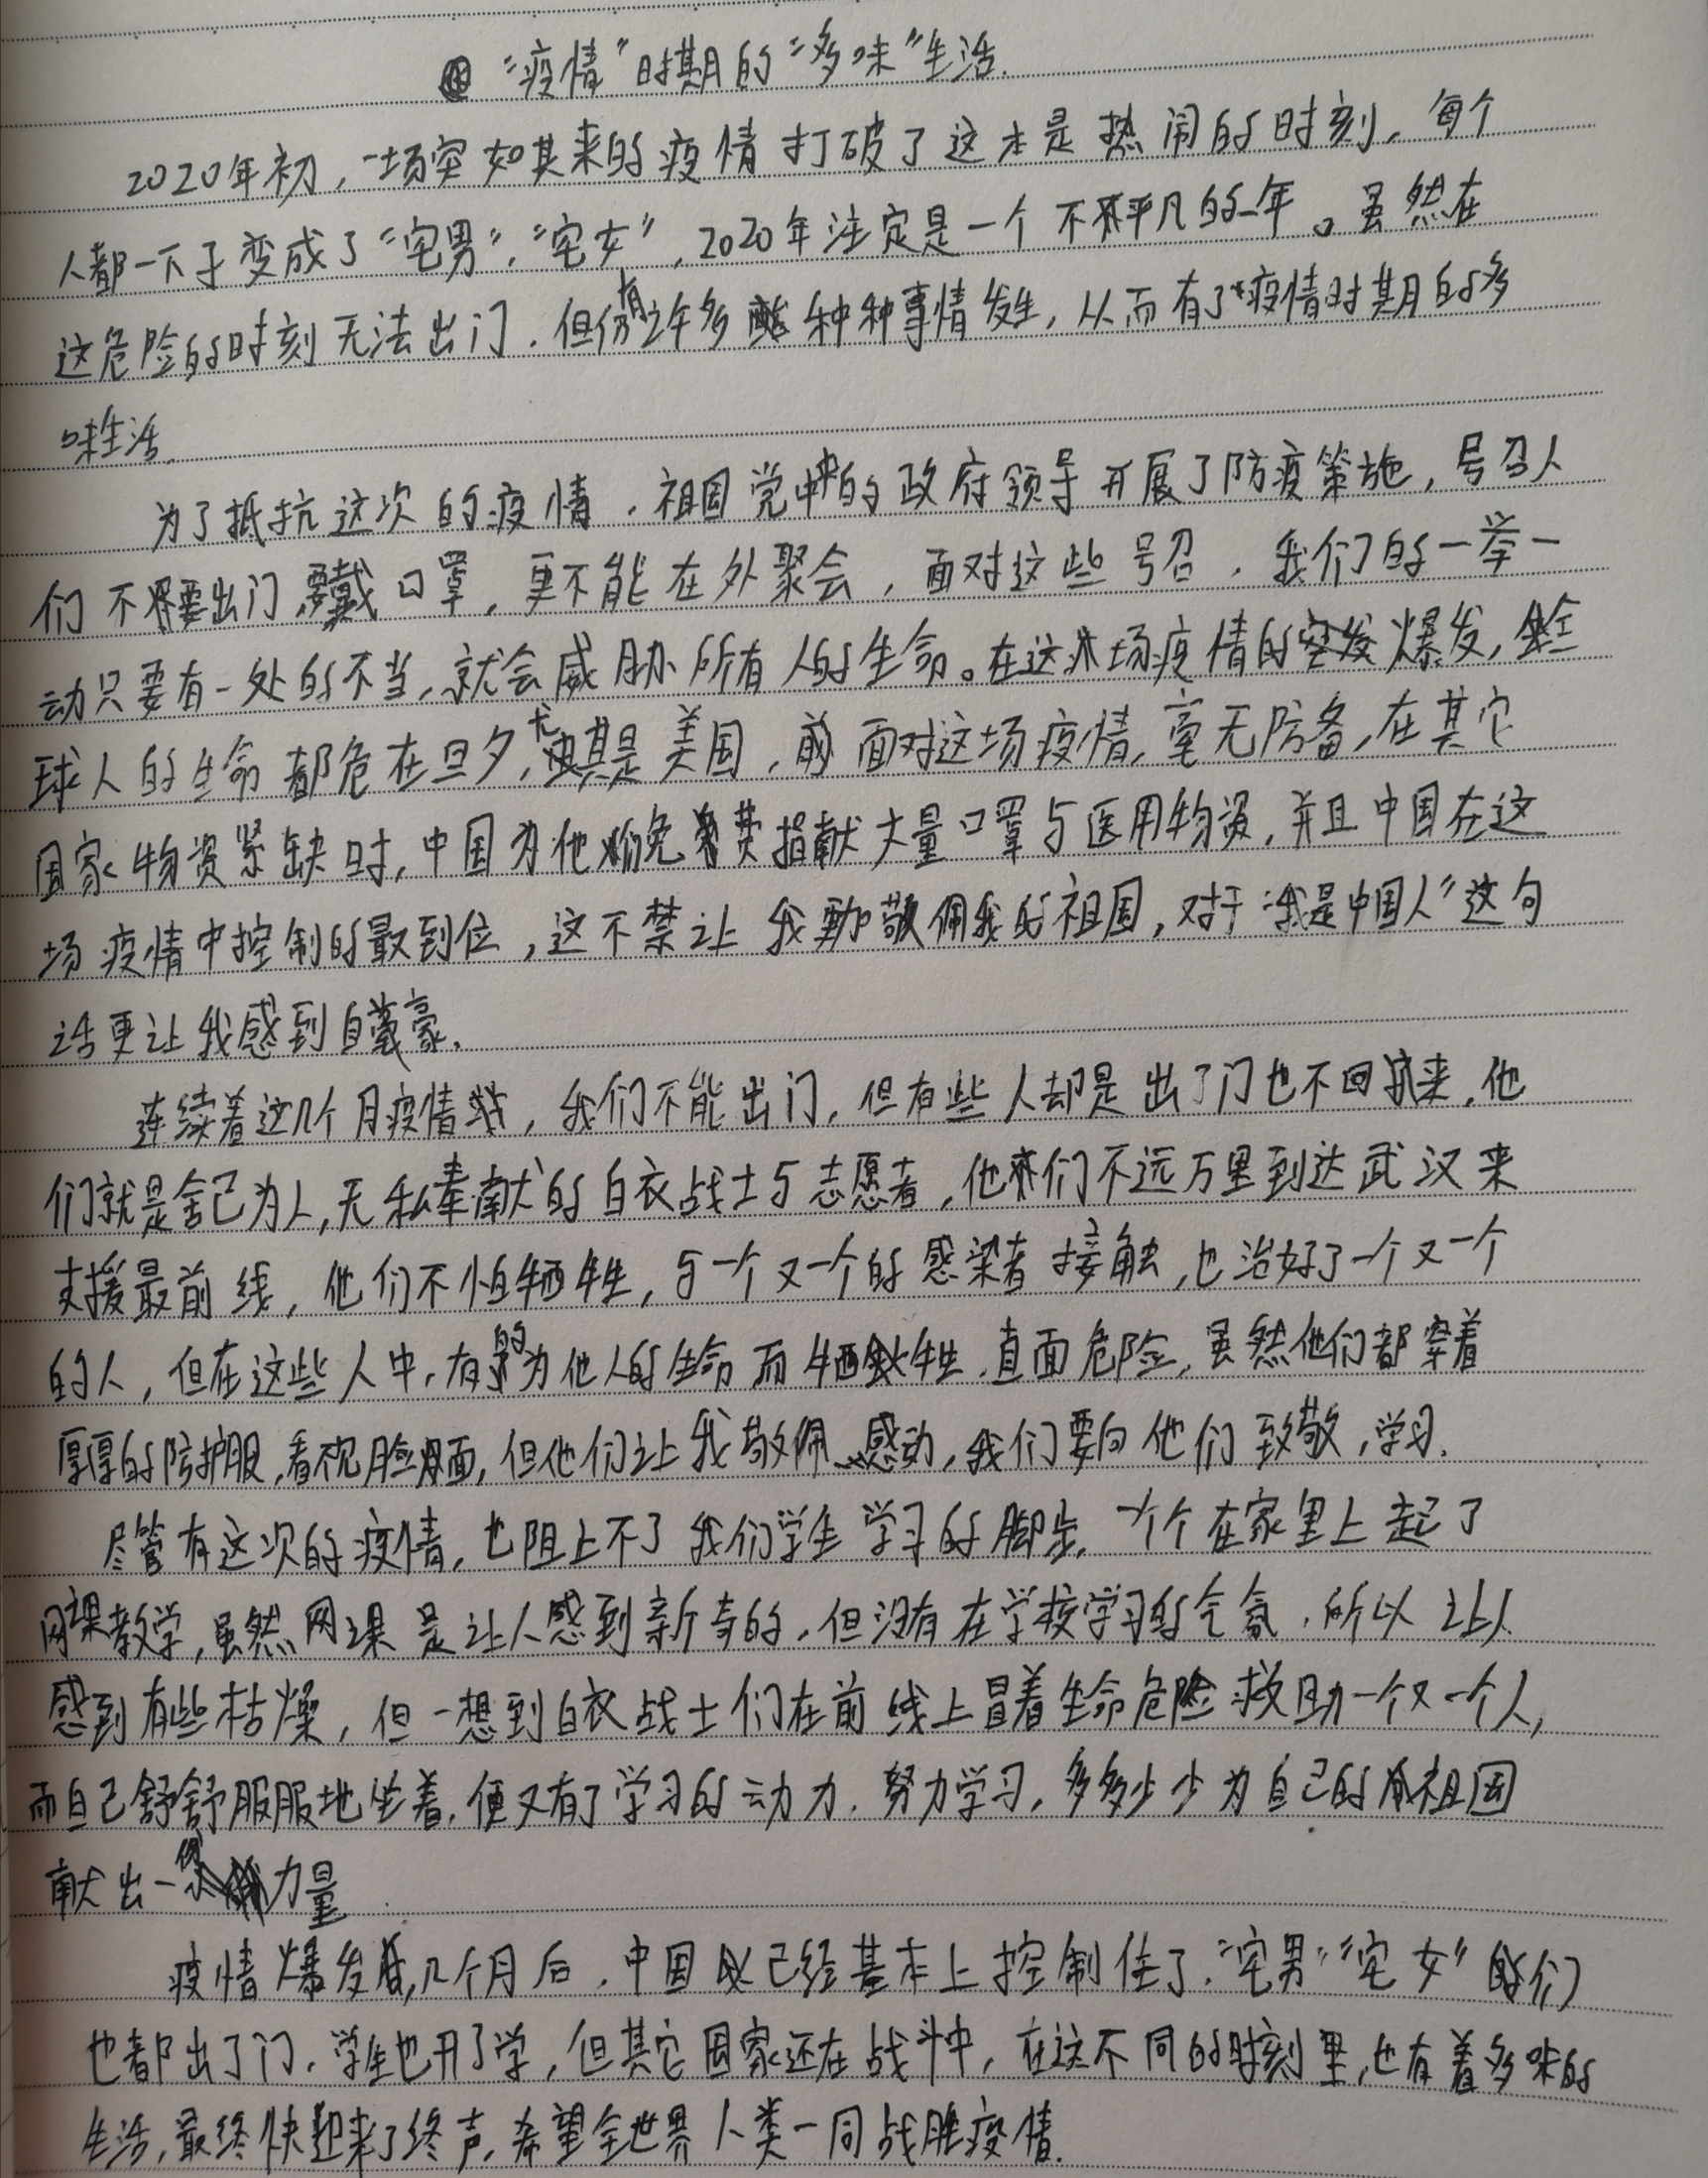 “疫情”时期的“多味”生活.
2020年初,一场突如其来的疫情打破了这本是热闹的时刻,每个
人都一下子变成了“宅男”,“宅女”,2020年注定是一个不平凡的一年。虽然在
这危险的时刻无法出门.但仍有许多种种事情发生,从而有了疫情时期的多
味生活.
为了抵抗这次的疫情.祖国党中央的政府领导开展了防疫策施,号召人
们不要出门,要戴口罩,更不能在外聚会,面对这些号召.我们的一举一
动只要有一处的不当,就会威胁所有人的生命。在这场疫情的爆发,全
球人的生命都危在旦夕,尤其是美国,面对这场疫情,毫无防备,在其它
国家物资紧缺时,中国为他们免费捐献大量口罩与医用物资,并且中国在这
场疫情中控制的最到位,这不禁让我更加敬佩我的祖国,对于“我是中国人”这句
话更让我感到自豪.
连续着这几个月疫情,我们不能出门,但有些人却是出了门也不回来.他
们就是舍己为人,无私奉献的白衣战士与志愿者,他们不远万里到达武汉来
支援最前线,他们不怕牺牲,与一个又一个的感染者接触,也治好了一个又一个
的人,但在这些人中,有的为他人的生命而牺牲.直面危险,虽然他们都穿着
厚厚的防护服,看不见脸面,但他们让我敬佩、感动,我们要向他们致敬,学习.
尽管有这次的疫情,也阻止不了我们学生学习的脚步,一个个在家里上起了
网课教学,虽然网课是让人感到新奇的.但没有在学校学习的气氛.所以让人
感到有些枯燥,但一想到白衣战士们在前线上冒着生命危险救助一个又一个人,
而自己舒舒服服地坐着,便又有了学习的动力.努力学习,多多少少为自己的祖国
献出一份力量.
疫情爆发几个月后.中国已经基本上控制住了.“宅男”“宅女”们
也都出了门.学生也开了学,但其它国家还在战斗中,在这不同的时刻里,也有着多味的
生活,最终快迎来了终声,希望全世界人类一同战胜疫情.